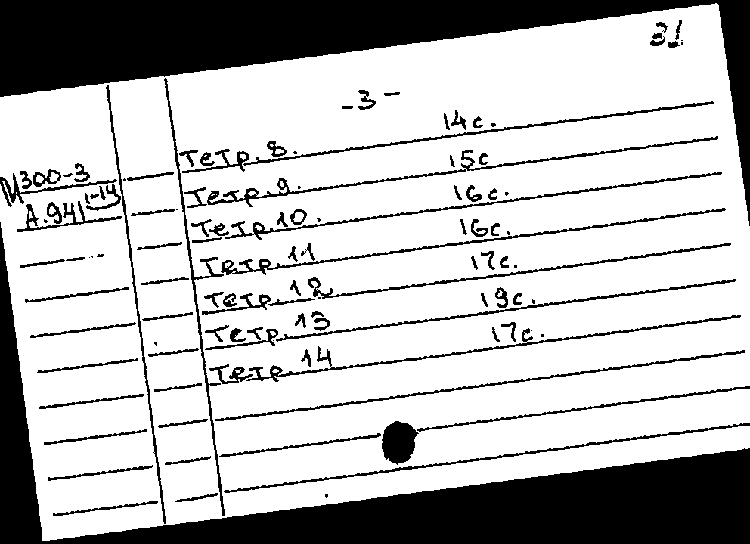 31
-3-
Тетр. 8. 14с.
И300-3
Тетр. 9. 15с
А.941 1-14
Тетр. 10. 16с.
Тетр. 11 16с.
Тетр. 12 17с.
Тетр. 13 19с.
Тетр. 14 17с.